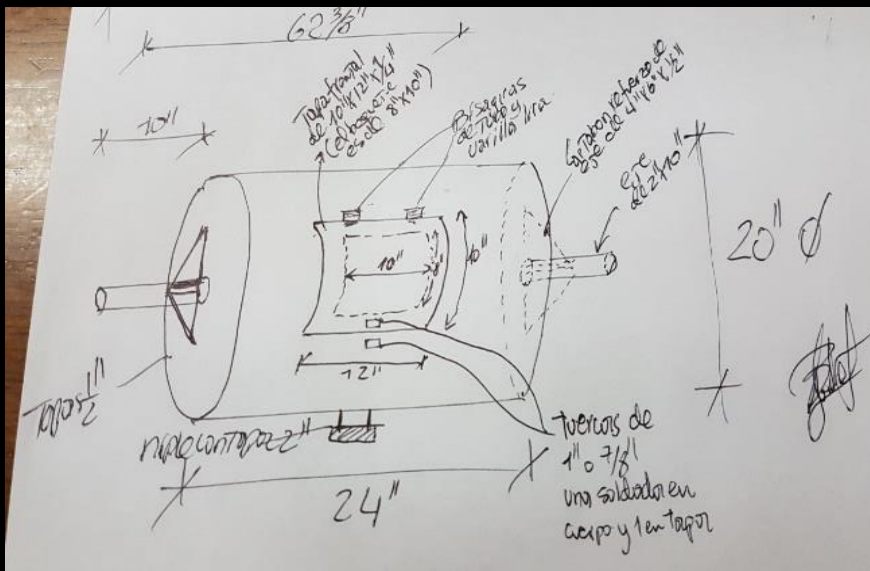 62 3/8"
10"
Tapa frontal
de 10"x12"x1/4"
(el boquete
es de 8"x10")
Bisagras
de tubo y
varilla lisa
Cartabon refuerzo de
eje de 4"x6"x1/2"
eje
de 2"x10"
20" Ø
10"
10"
12"
Tapas 1/2"
niple con tapa 2"
24"
Tuercas de
1" o 7/8"
una soldada en
cuerpo y 1 en tapa